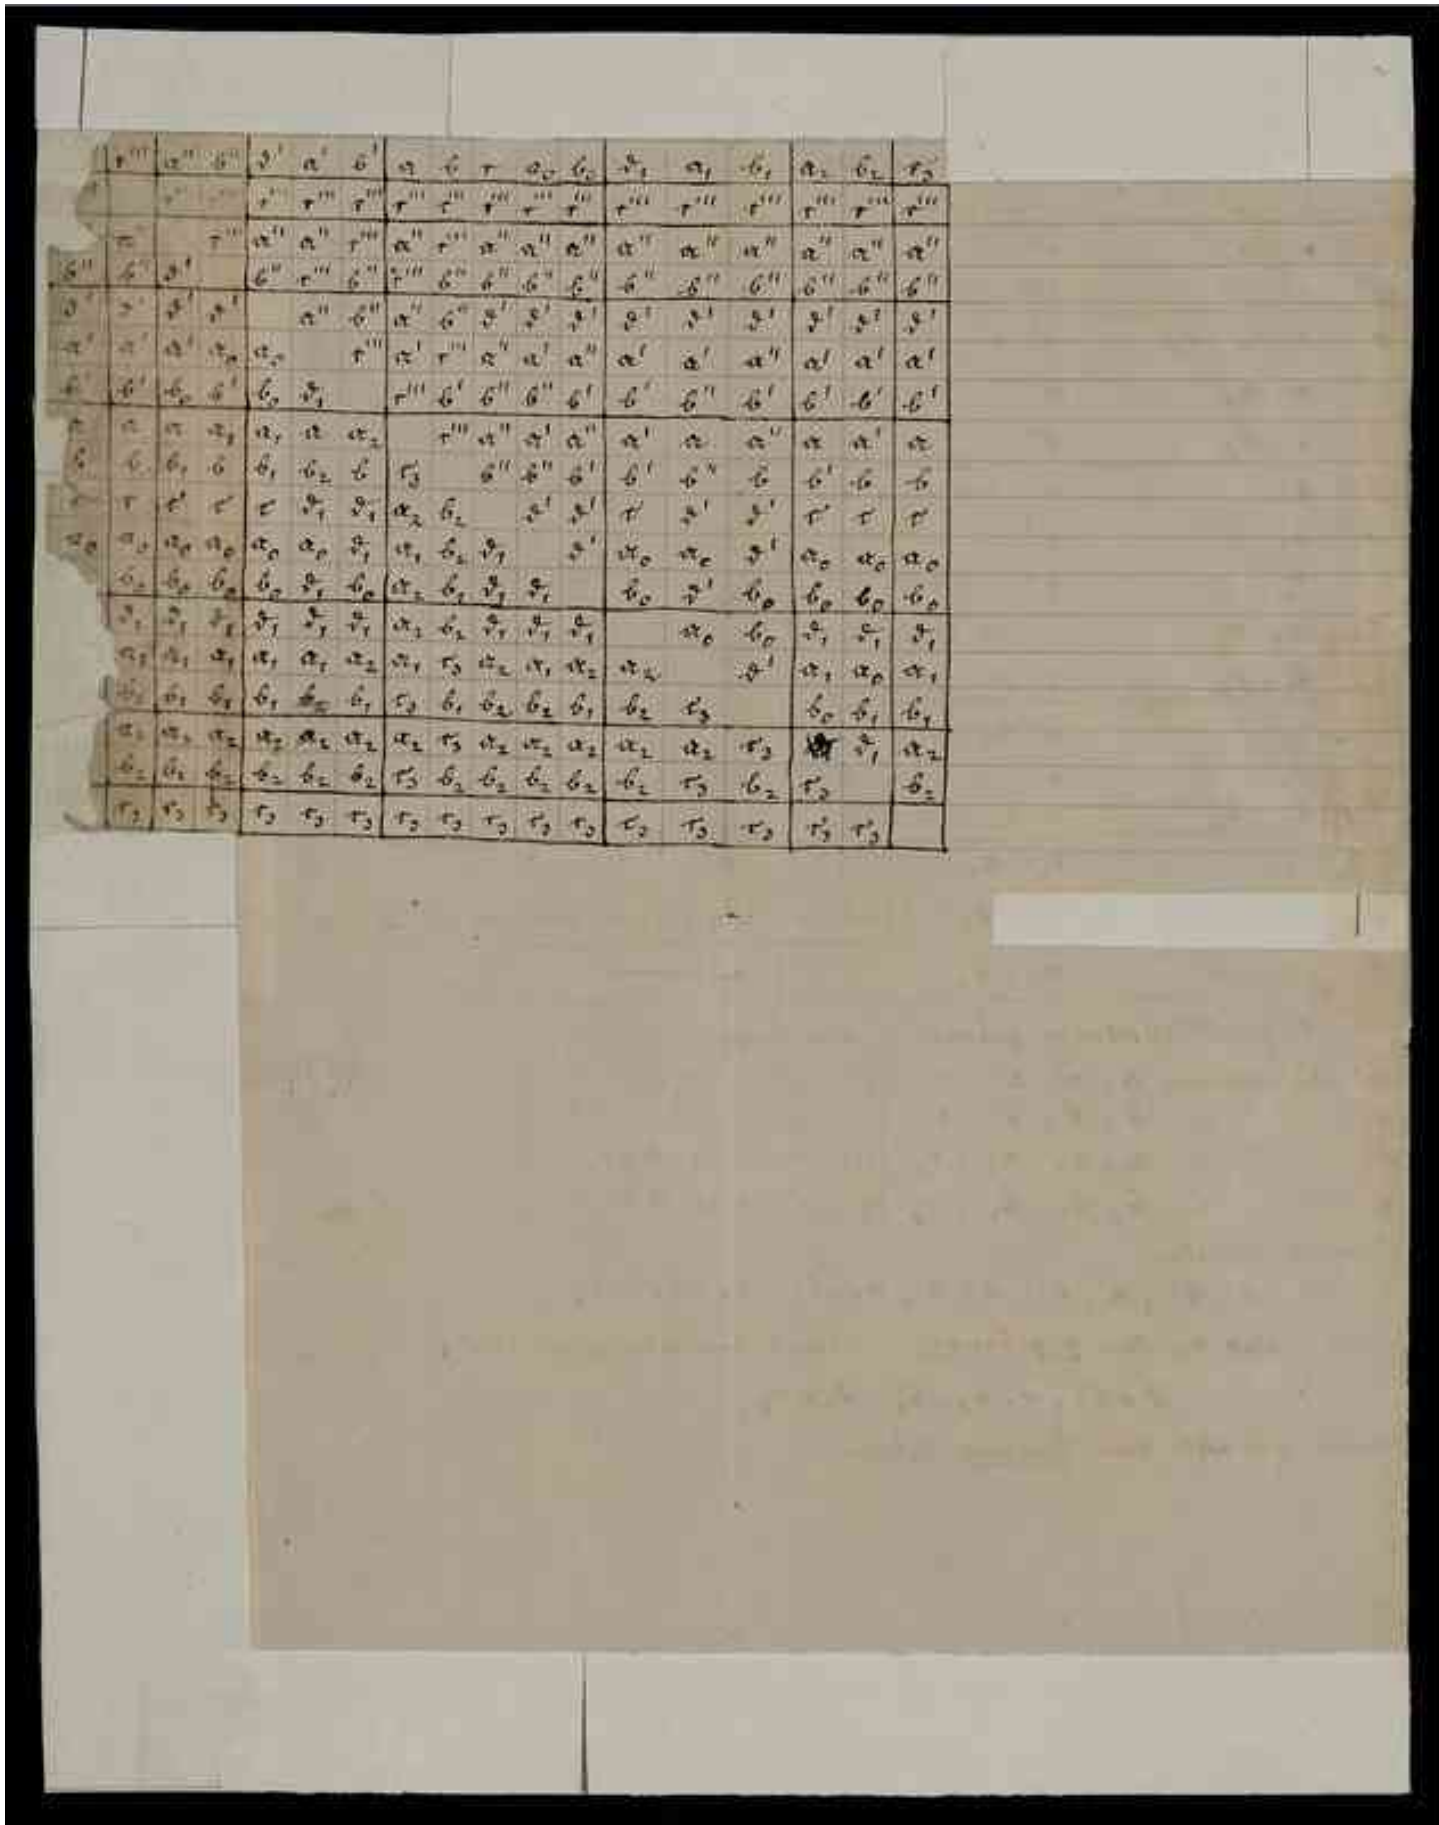 r''' a'' b'' d' a' b' a b r a₀ b₀ d₁ a₁ b₁ a₂ b₂ r₃
r''' r''' r''' r''' r''' r''' r''' r''' r''' r''' r''' r''' r''' r''' r''' r'''
r''' a'' a'' r''' a'' r''' a'' a'' a'' a'' a'' a'' a'' a'' a''
b'' b'' d' b'' r''' b'' r''' b'' b'' b'' b'' b'' b'' b'' b'' b'' b''
d' d' d' a'' b'' a'' b'' d' d' d' d' d' d' d' d' d'
a' a' a' a₀ a₀ r''' a' r''' a'' a' a'' a' a' a'' a' a' a'
b' b' b₀ b' b₀ d₁ r''' b' b'' b'' b' b' b'' b' b' b' b'
a a a a₁ a₁ a a₂ r''' a'' a' a'' a' a a'' a a' a
b b b₁ b b₁ b₂ b r₃ b'' b'' b' b' b'' b b' b b
r r r r r d₁ d₁ a₂ b₂ d' d' r d' d' r r r
a₀ a₀ a₀ a₀ a₀ a₀ d₁ a₁ b₂ d₁ d' a₀ a₀ d' a₀ a₀ a₀
b₀ b₀ b₀ d₁ b₀ a₂ b₁ d₁ d₁ b₀ d' b₀ b₀ b₀ b₀
d₁ d₁ d₁ d₁ d₁ d₁ a₂ b₂ d₁ d₁ d₁ a₀ b₀ d₁ d₁ d₁
a₁ a₁ a₁ a₁ a₁ a₂ a₁ r₃ a₂ a₁ a₂ a₂ d' a₁ a₀ a₁
b₁ b₁ b₁ b₁ b₂ b₁ r₃ b₁ b₂ b₂ b₁ b₂ r₃ b₀ b₁ b₁
a₂ a₂ a₂ a₂ a₂ a₂ a₂ r₃ a₂ a₂ a₂ a₂ a₂ r₃ d₁ a₂
b₂ b₂ b₂ b₂ b₂ b₂ r₃ b₂ b₂ b₂ b₂ b₂ r₃ b₂ r₃ b₂
r₃ r₃ r₃ r₃ r₃ r₃ r₃ r₃ r₃ r₃ r₃ r₃ r₃ r₃ r₃ r₃